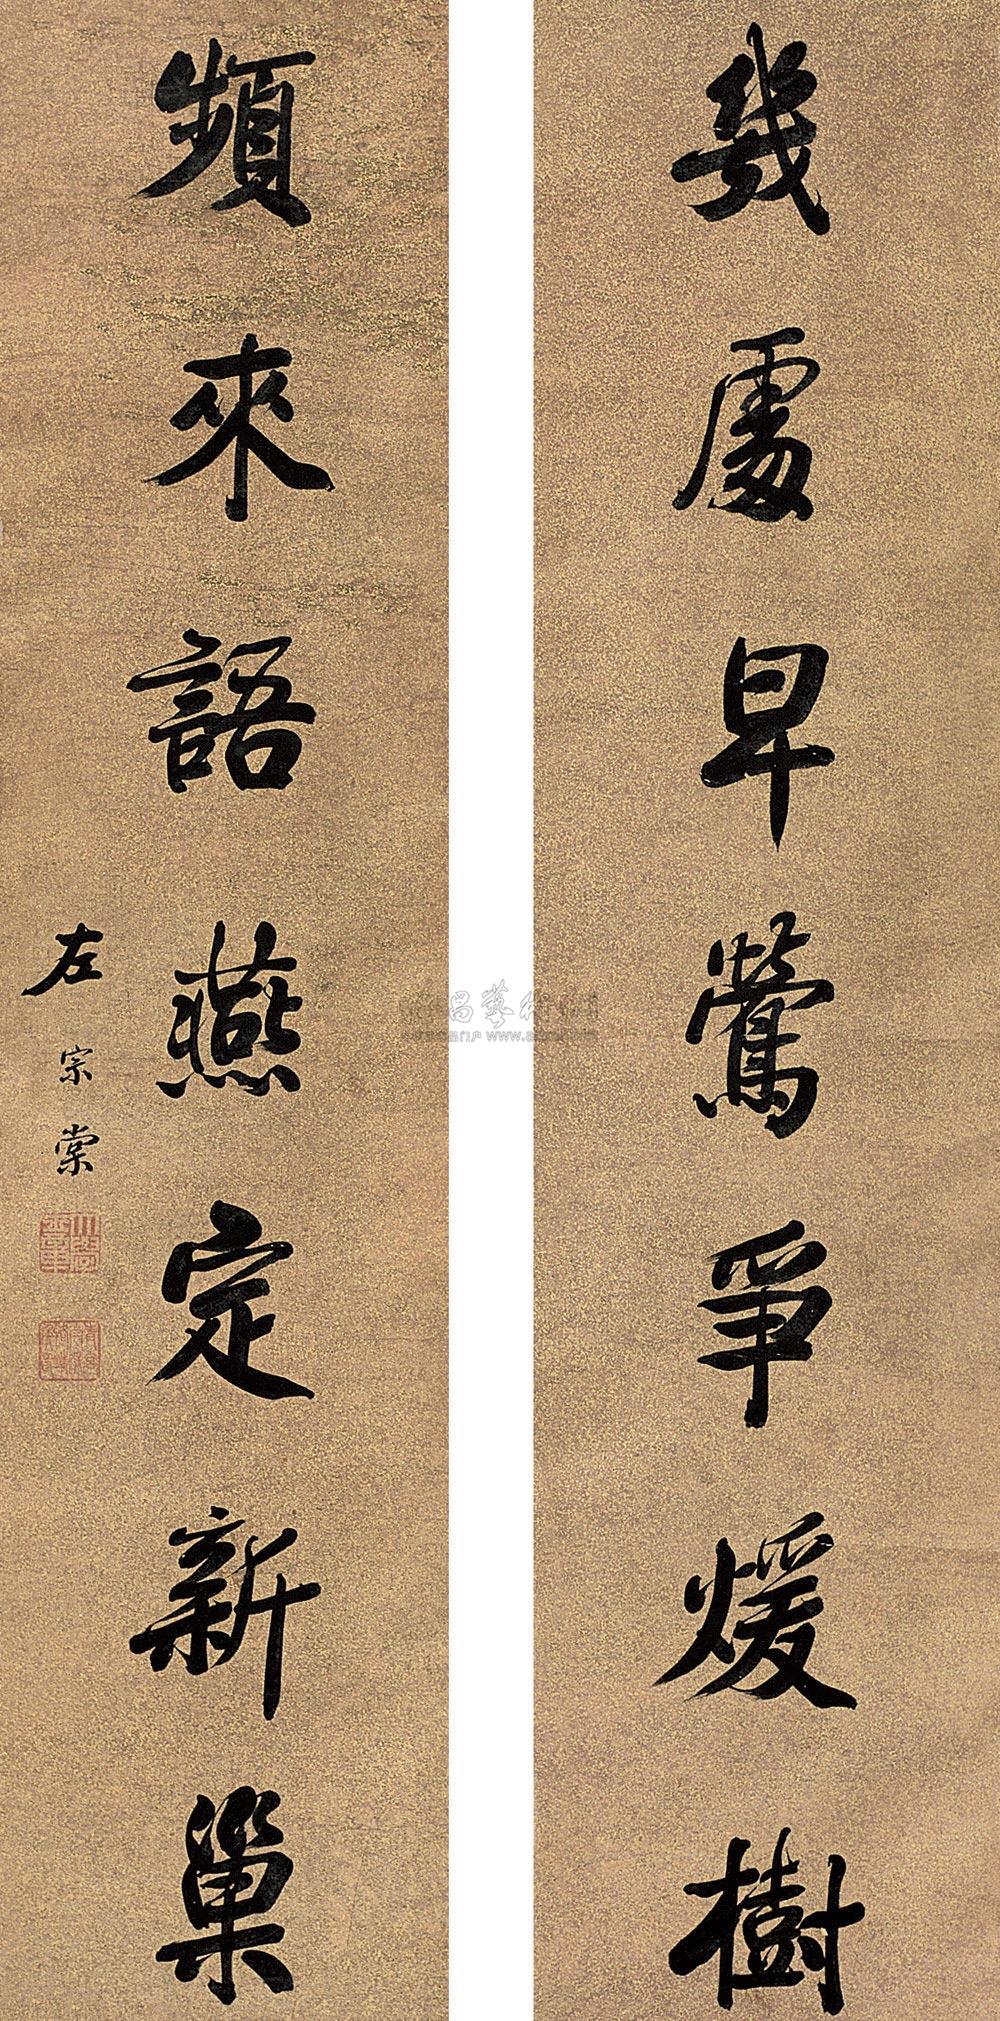 幾處早鶯爭煖樹
頻來語燕定新巢
左宗棠